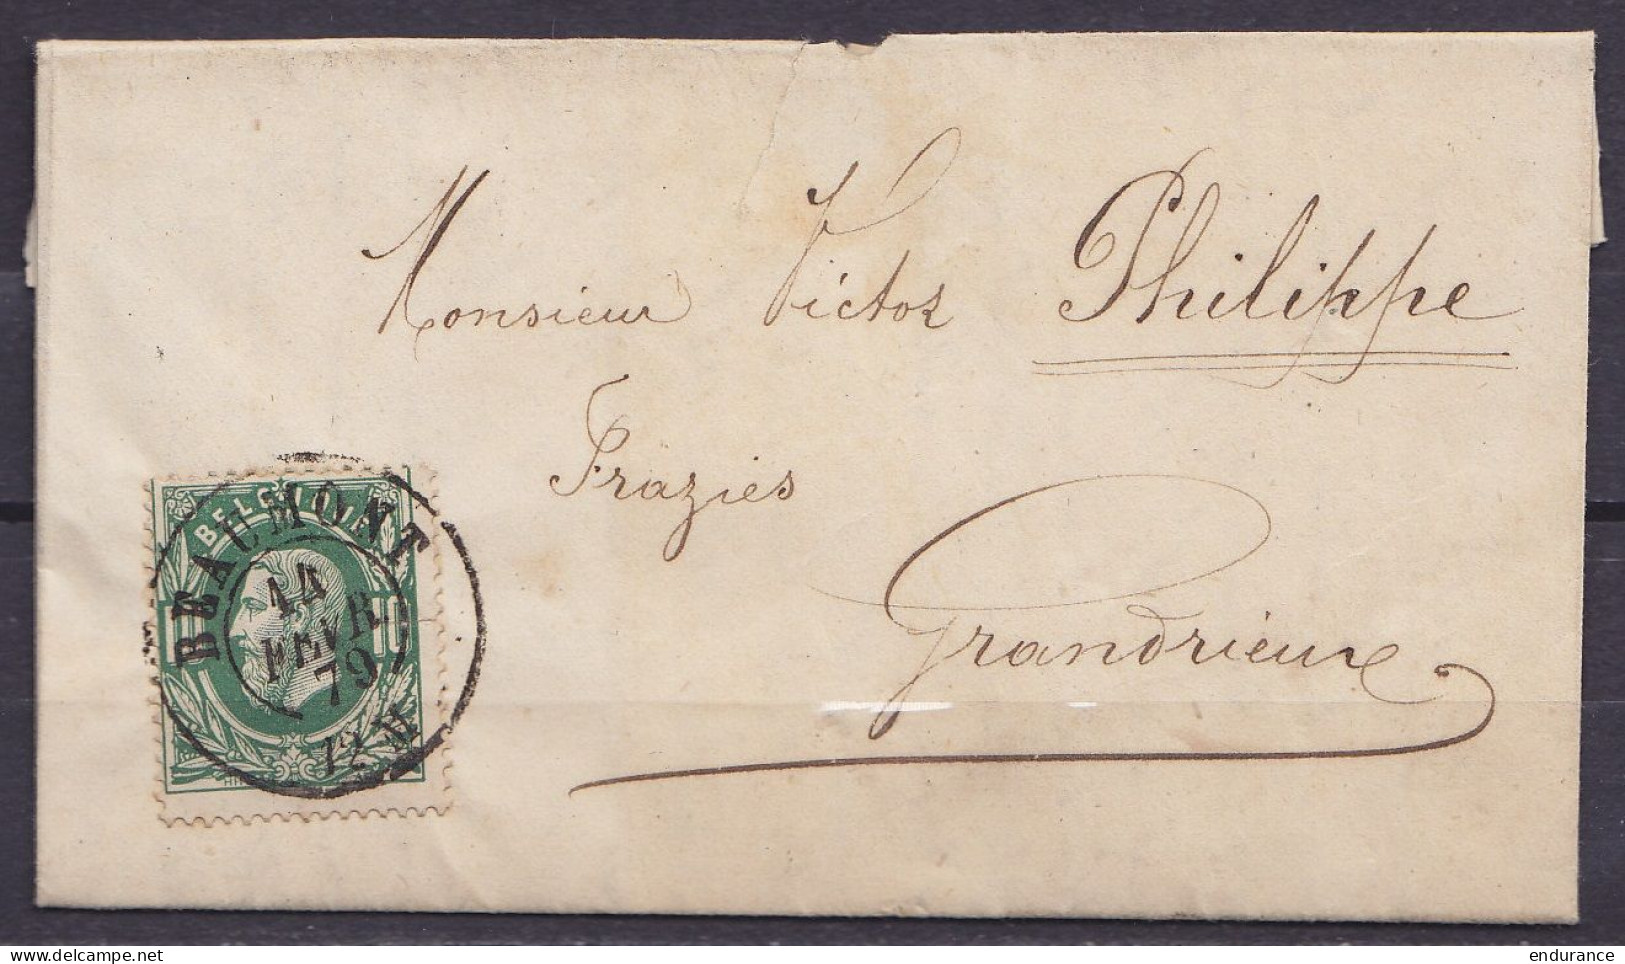 Monsieur Victor Philippe
Frazies
Grandrieux
BELGIQUE
BEAUMONT
14
FEVR
79
12 M
www.delcampe.net
endurance